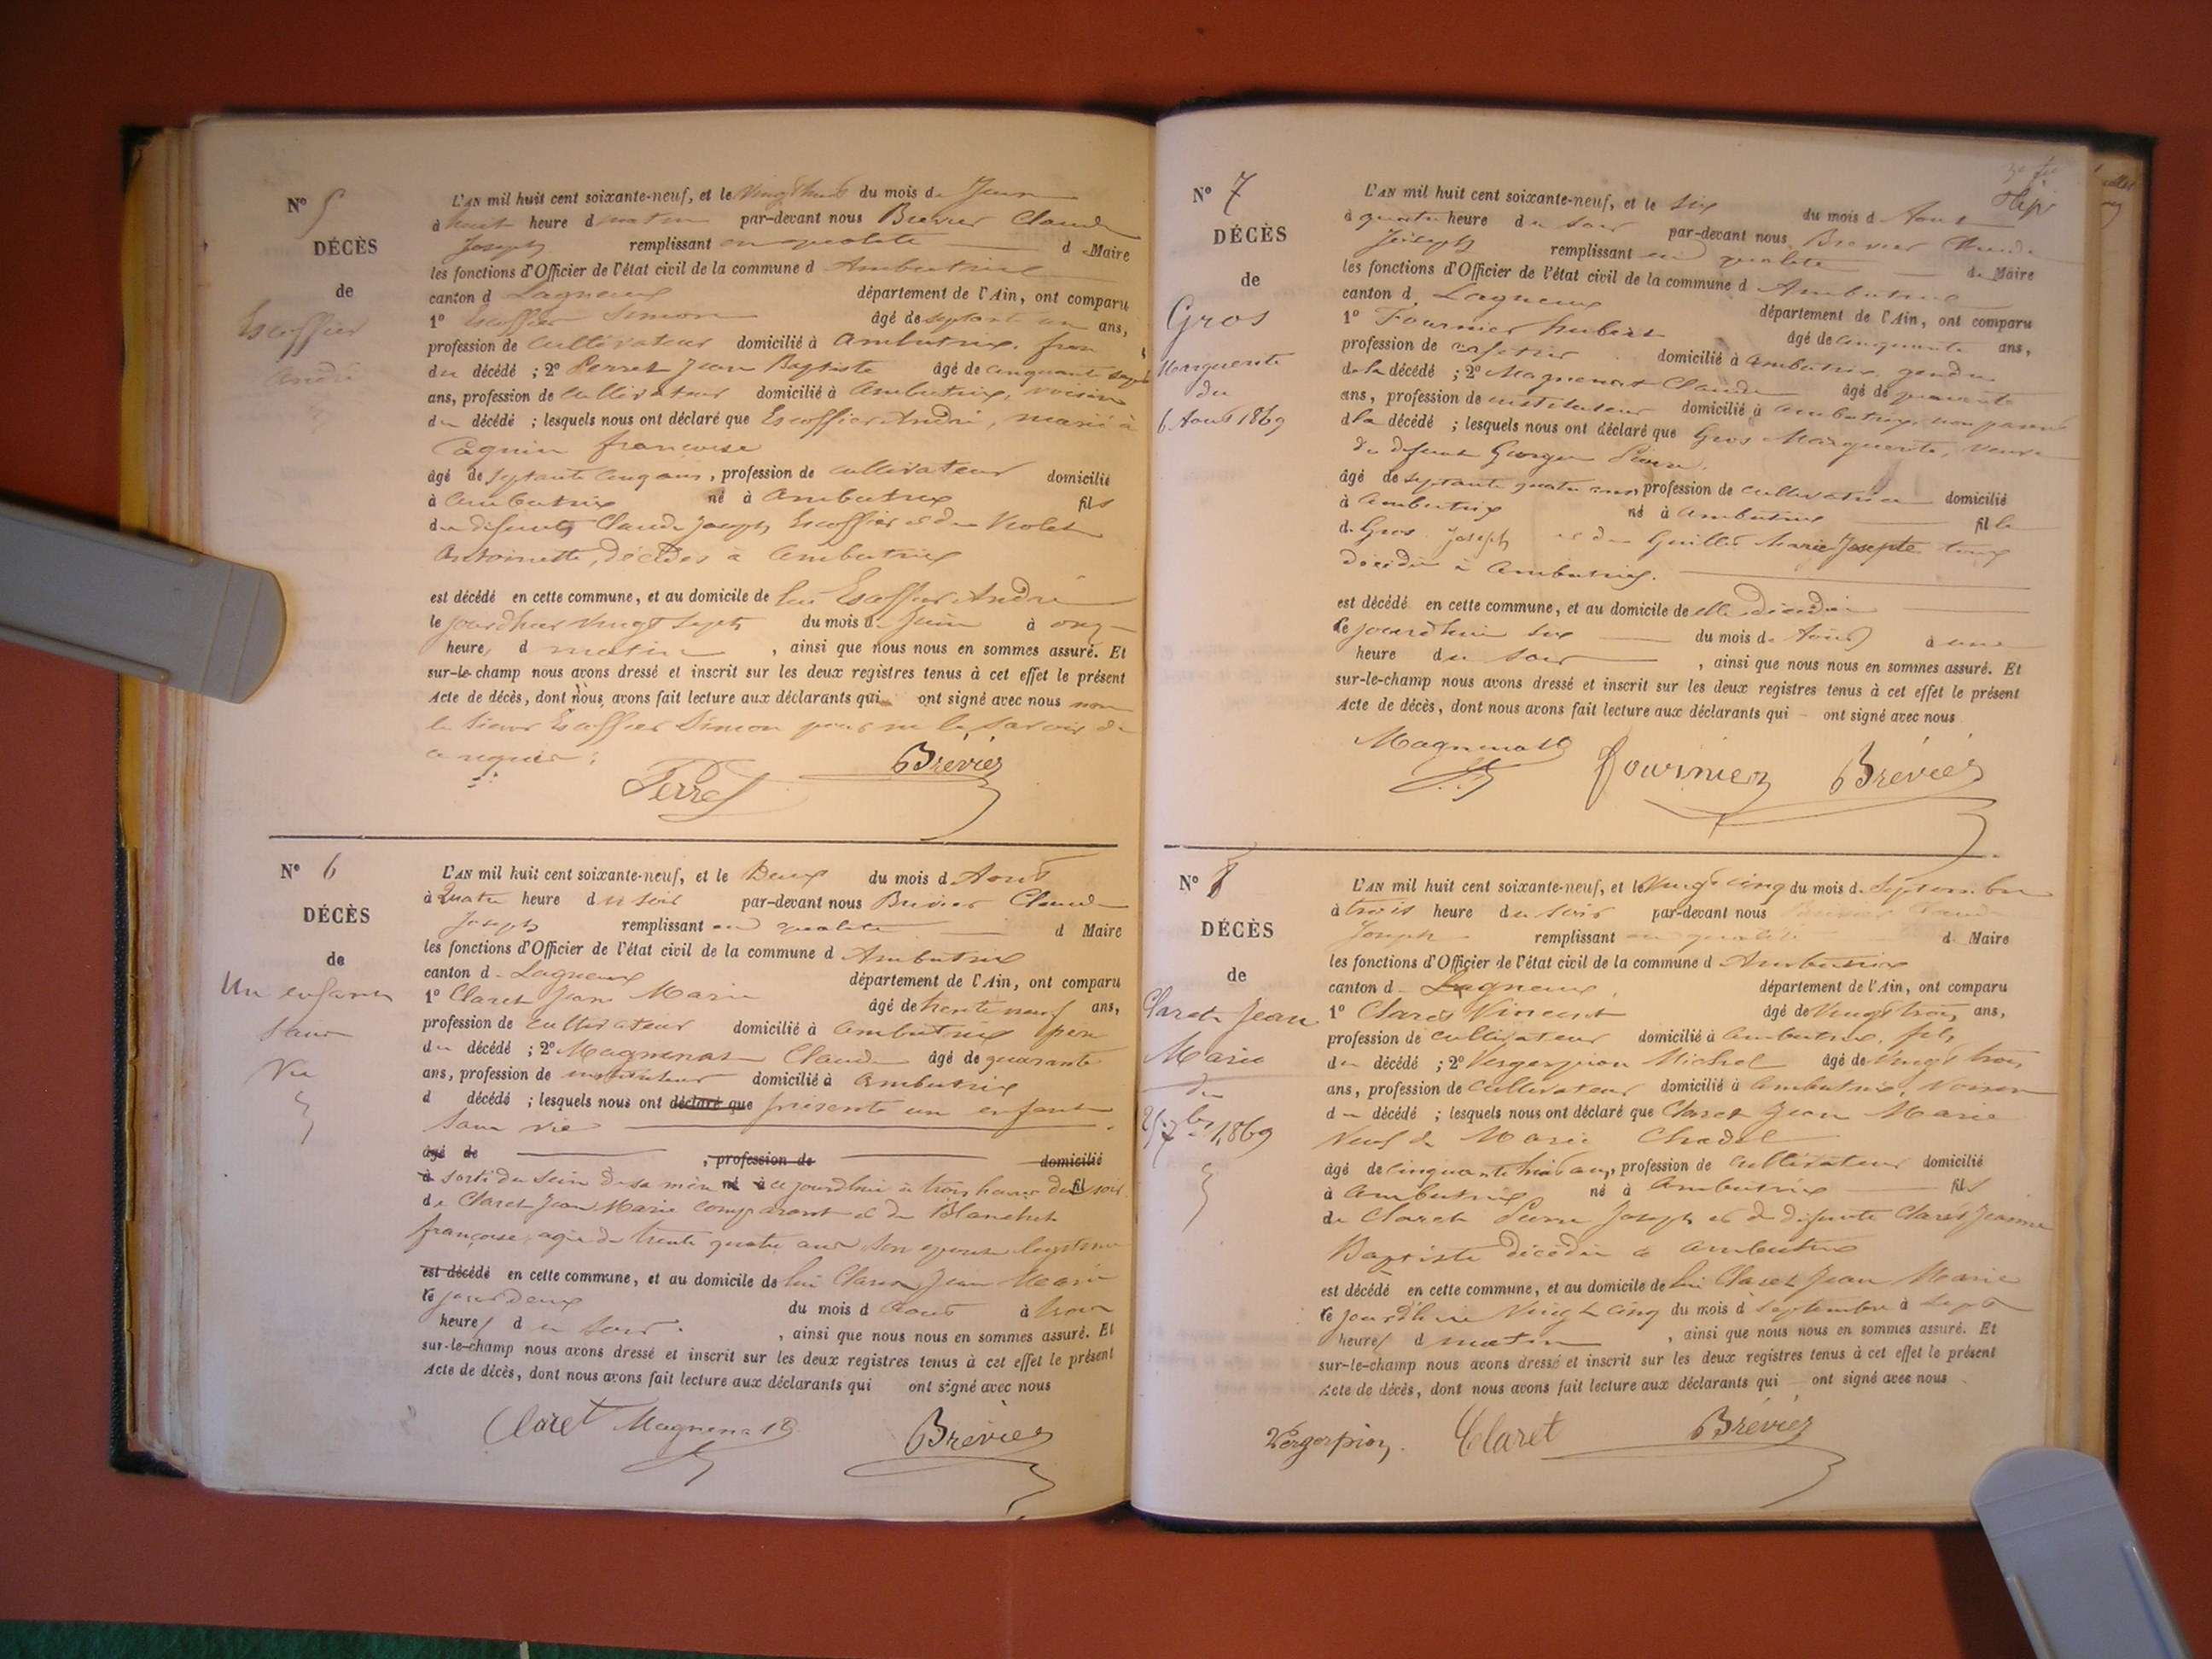 N° 5
DÉCÈS
de
Escoffier
André
L'AN mil huit cent soixante-neuf, et le Vingt huit du mois de Juin
à huit heure d matin par-devant nous Brevier Claude
Joseph remplissant en qualité d Maire
les fonctions d'Officier de l'état civil de la commune d Ambutrix
canton d Lagneux département de l'Ain, ont comparu
1° Escoffier Simon âgé de septante un ans,
profession de cultivateur domicilié à Ambutrix, frere
du décédé ; 2° Perret Jean Baptiste âgé de cinquante sept
ans, profession de cultivateur domicilié à Ambutrix, voisin
du décédé ; lesquels nous ont déclaré que Escoffier André, marié à
françoise
âgé de septante cinq ans, profession de cultivateur domicilié
à Ambutrix né à Ambutrix fils
du défunts Claude Joseph Escoffier et de Violet
Antoinette, décédés à Ambutrix
est décédé en cette commune, et au domicile de lui Escoffier André
le jourdhui vingt sept du mois de Juin à onze
heure d matin , ainsi que nous nous en sommes assuré. Et
sur-le-champ nous avons dressé et inscrit sur les deux registres tenus à cet effet le présent
Acte de décès, dont nous avons fait lecture aux déclarants qui ont signé avec nous non
le Sieur Escoffier Simon pour ne le savoir de
ce requis ;
Perret Brévier
N° 6
DÉCÈS
de
Un enfant
sans
vie
L'AN mil huit cent soixante-neuf, et le Deux du mois d Août
à Quatre heure du soir par-devant nous Brevier Claude
Joseph remplissant en qualité d Maire
les fonctions d'Officier de l'état civil de la commune d Ambutrix
canton d Lagneux département de l'Ain, ont comparu
1° Claret Jean Marie âgé de trente neuf ans,
profession de cultivateur domicilié à Ambutrix pere
du décédé ; 2° Magnenat Claude âgé de quarante
ans, profession de instituteur domicilié à Ambutrix
d décédé ; lesquels nous ont déclaré que présenté un enfant
sans vie
âgé de , profession de domicilié
à sorti du sein de sa mère né à ce jourdhui à trois heures du fil soir
de Claret Jean Marie comparant et de Blanchet
françoise, agée de trente quatre ans son epouse legitime
est décédé en cette commune, et au domicile de lui Claret Jean Marie
le jour deux du mois d Aout à trois
heure du soir , ainsi que nous nous en sommes assuré. Et
sur-le-champ nous avons dressé et inscrit sur les deux registres tenus à cet effet le présent
Acte de décès, dont nous avons fait lecture aux déclarants qui ont signé avec nous
Claret Magnenat Brévier
N° 7
DÉCÈS
de
Gros
Marguerite
du
6 Aout 1869
L'AN mil huit cent soixante-neuf, et le six du mois d Aout
à quatre heure du soir par-devant nous Brevier Claude
Joseph remplissant en qualité de Maire
les fonctions d'Officier de l'état civil de la commune d Ambutrix
canton d Lagneux département de l'Ain, ont comparu
1° Fournier hubert âgé de cinquante ans,
profession de cafetier domicilié à Ambutrix, gendre
de la décédé ; 2° Magnenat Claude âgé de quarante
ans, profession de instituteur domicilié à Ambutrix, non parent
d la décédé ; lesquels nous ont déclaré que Gros Marguerite, veuve
du defunt Pierre.
âgé de septante quatre ans, profession de cultivatrice domicilié
à Ambutrix né à Ambutrix fille
de Gros Joseph et de Guillet Marie Josepte tous
décédés à Ambutrix.
est décédé en cette commune, et au domicile de elle décédée
le jourdhui six du mois de Août à une
heure du soir , ainsi que nous nous en sommes assuré. Et
sur-le-champ nous avons dressé et inscrit sur les deux registres tenus à cet effet le présent
Acte de décès, dont nous avons fait lecture aux déclarants qui ont signé avec nous
Magnenat Fournier Brévier
N° 8
DÉCÈS
de
Claret Jean
Marie
du
25 7bre 1869
L'AN mil huit cent soixante-neuf, et le Vingt cinq du mois de Septembre
à trois heure du soir par-devant nous Brevier Claude
Joseph remplissant en qualité d Maire
les fonctions d'Officier de l'état civil de la commune d Ambutrix
canton d Lagneux, département de l'Ain, ont comparu
1° Claret Vincent âgé de Vingt trois ans,
profession de cultivateur domicilié à Ambutrix, fils
du décédé ; 2° Vergerpion Michel âgé de Vingt trois
ans, profession de cultivateur domicilié à Ambutrix, voisin
du décédé ; lesquels nous ont déclaré que Claret Jean Marie
veuf de Marie
âgé de cinquante huit ans, profession de cultivateur domicilié
à Ambutrix né à Ambutrix fils
de Claret Pierre Joseph et de défunte Claret Jeanne
Baptiste décédée à Ambutrix
est décédé en cette commune, et au domicile de lui Claret Jean Marie
le jourdhui Vingt cinq du mois d Septembre à sept
heure d matin , ainsi que nous nous en sommes assuré. Et
sur-le-champ nous avons dressé et inscrit sur les deux registres tenus à cet effet le présent
Acte de décès, dont nous avons fait lecture aux déclarants qui ont signé avec nous
Vergerpion. Claret Brévier